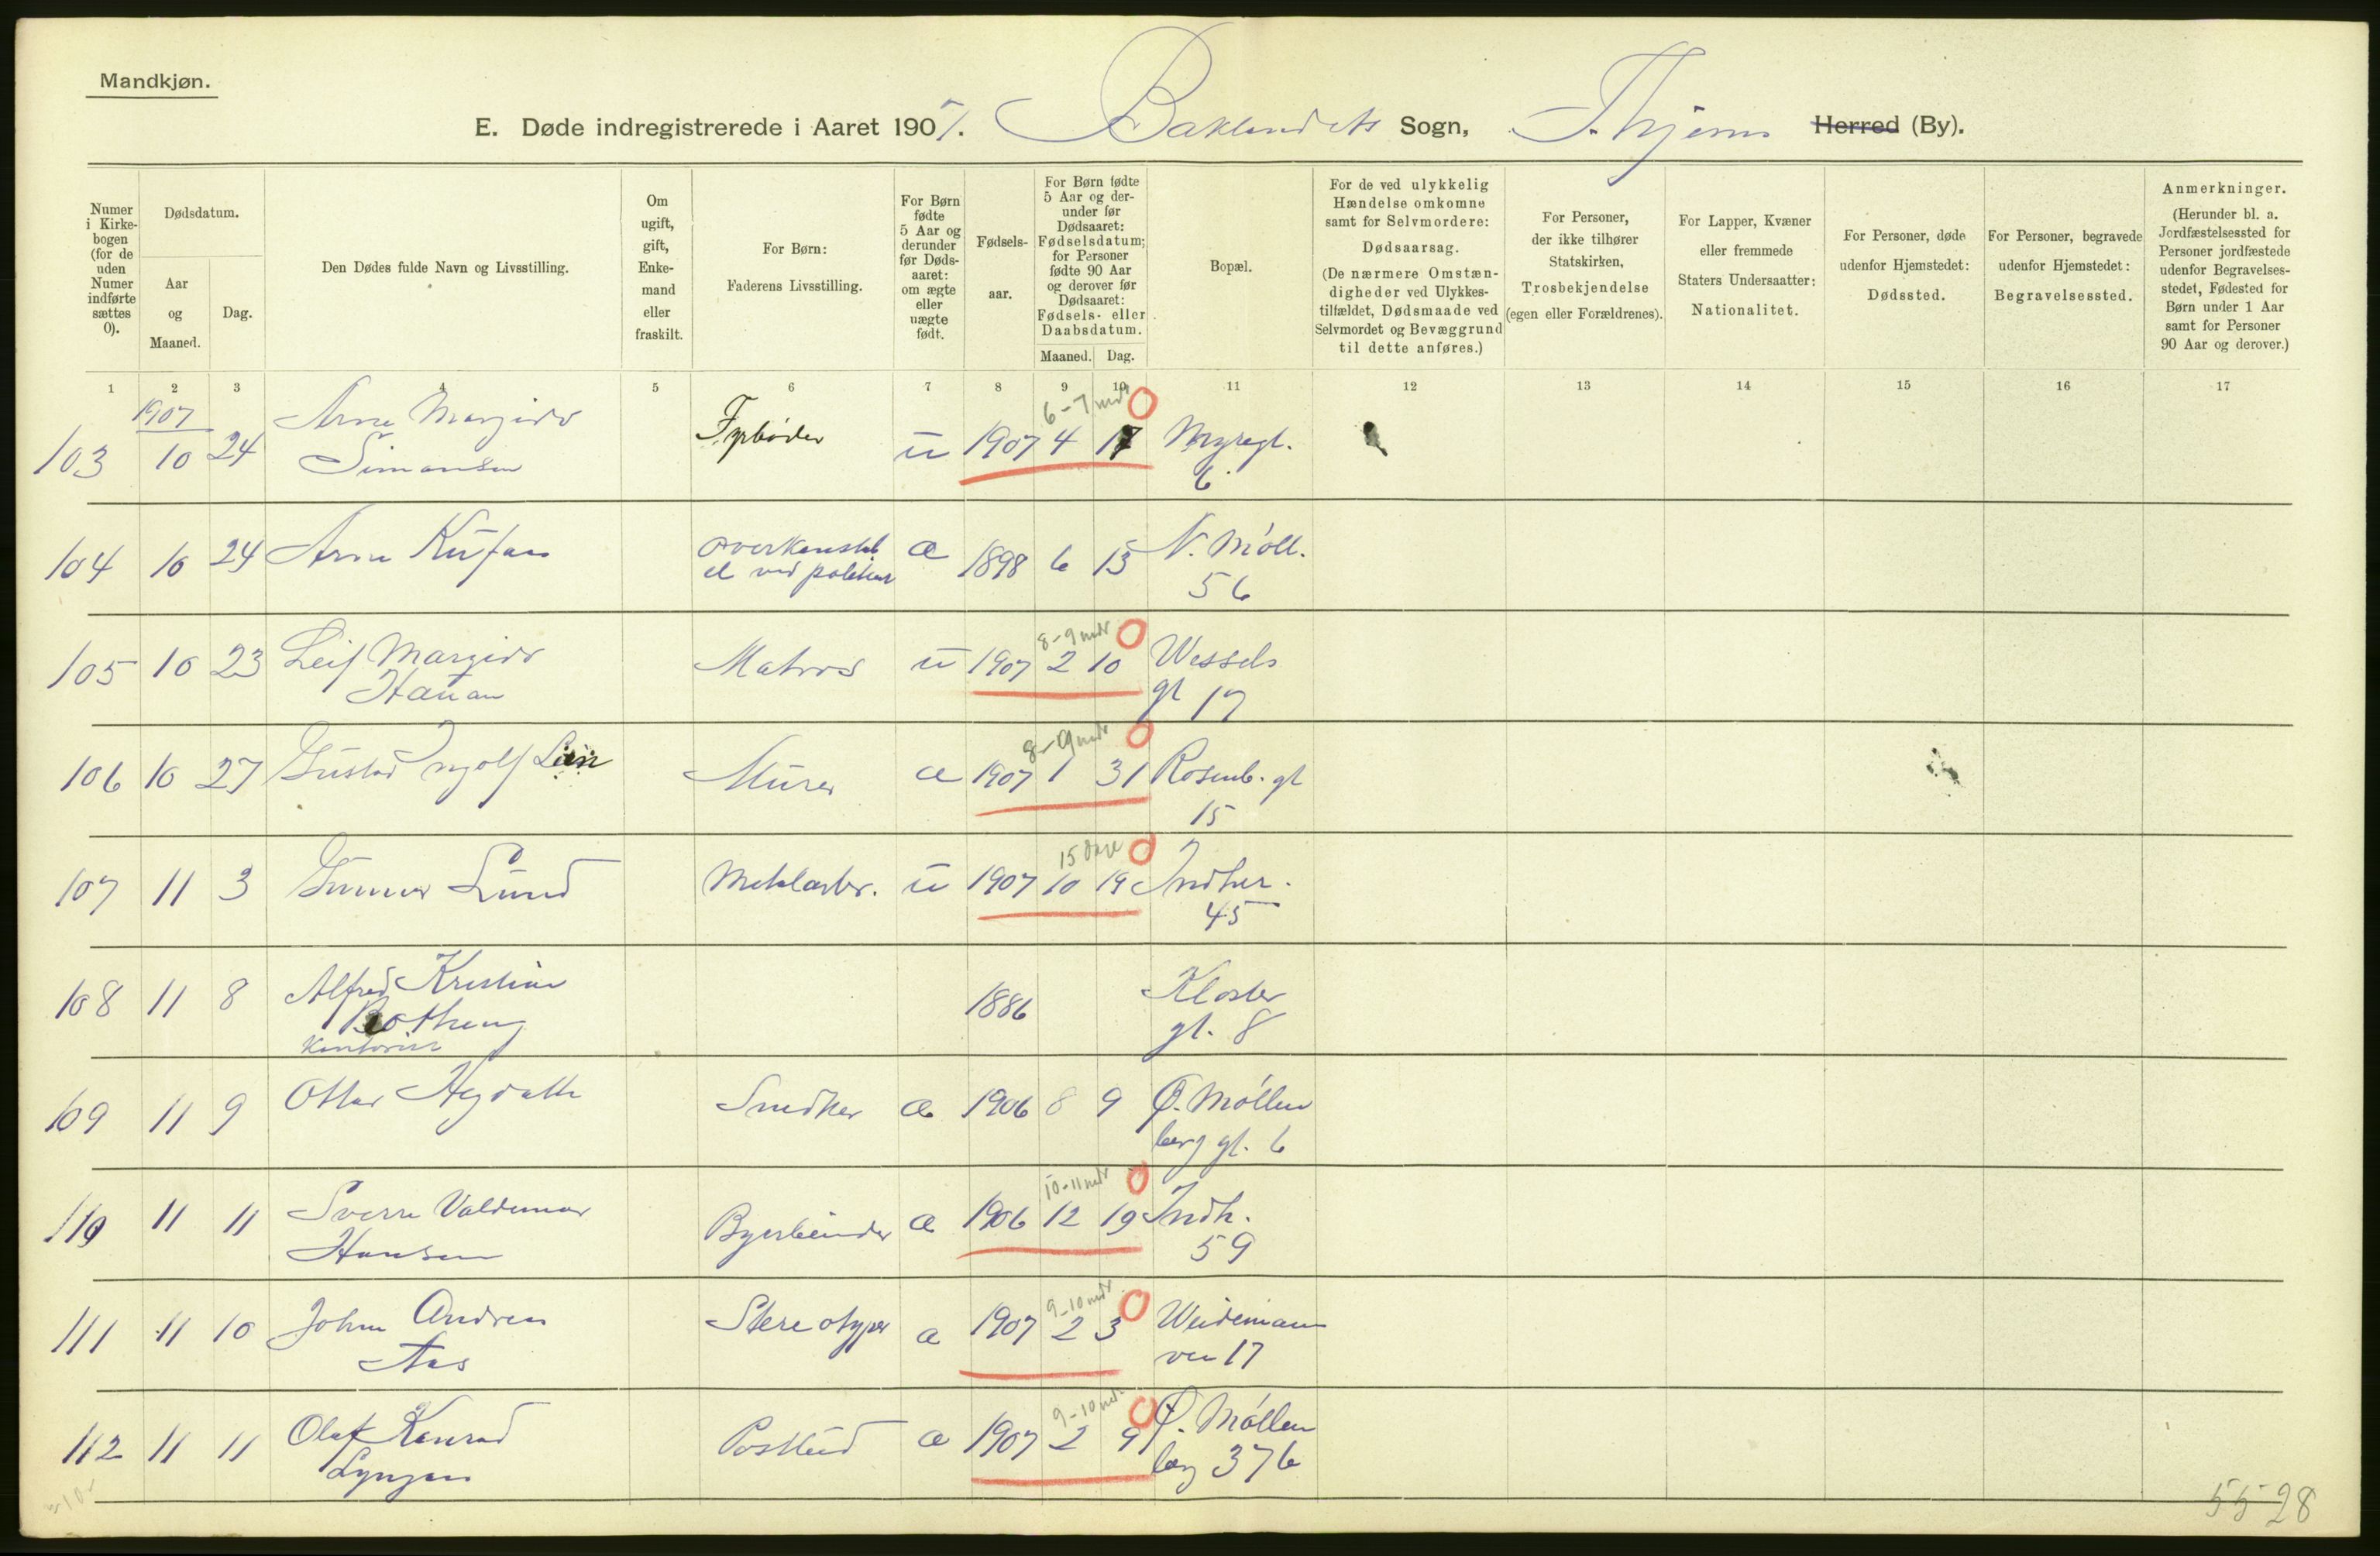 Mandkjøn.
E. Døde indregistrerede i Aaret 1907. Baklandets Sogn, T.hjems Herred (By).
Numer i Kirkebogen (for de uden Numer indførte sættes 0).
Dødsdatum.
Aar og Maaned.
Dag.
Den Dødes fulde Navn og Livsstilling.
Om ugift, gift, Enkemand eller fraskilt.
For Børn: Faderens Livsstilling.
For Børn fødte 5 Aar og derunder før Dødsaaret: om ægte eller uægte født.
Fødselsaar.
For Børn fødte 5 Aar og derunder før Dødsaaret: Fødselsdatum; for Personer fødte 90 Aar og derover før Dødsaaret: Fødsels- eller Daabsdatum.
Maaned. Dag.
Bopæl.
For de ved ulykkelig Hændelse omkomne samt for Selvmordere: Dødsaarsag. (De nærmere Omstændigheder ved Ulykkestilfældet, Dødsmaade ved Selvmordet og Bevæggrund til dette anføres.)
For Personer, der ikke tilhører Statskirken, Trosbekjendelse (egen eller Forældrenes).
For Lapper, Kvæner eller fremmede Staters Undersaatter: Nationalitet.
For Personer, døde udenfor Hjemstedet: Dødssted.
For Personer, begravede udenfor Hjemstedet: Begravelsessted.
Anmerkninger. (Herunder bl. a. Jordfæstelsessted for Personer jordfæstede udenfor Begravelsesstedet, Fødested for Børn under 1 Aar samt for Personer 90 Aar og derover.)
1 2 3 4 5 6 7 8 9 10 11 12 13 14 15 16 17
1907
6-7 mdr
103 10 24 Arne Margido Simonsen Fyrbøder u 1907 4 17 Myregt. 6
104 10 24 Arne Kufaas overkonstabel ved politiet æ 1898 6 13 N. Møll. 56
8-9 mdr
105 10 23 Leif Margido Hauan Matros u 1907 2 10 Wessels gt 17
8-9 mdr
106 10 27 Gustav Ingolf Lein Murer æ 1907 1 31 Rosenb. gt 15
15 dage
107 11 3 Gunnar Lund Meklarbr. u 1907 10 19 Indher. 45
108 11 8 Alfred Kristian Kontorist 1886 Kloster gt. 8
109 11 9 Ottar Snedker æ 1906 8 9 Ø. Møllenberg gt. 6
10-11 mdr
110 11 11 Sverre Valdemar Hansen æ 1906 12 19 Indh. 59
9-10 mdr.
111 11 10 John Andreas Aas Stereotyper æ 1907 2 3 Weideman vei 17
9-10 mdr
112 11 11 Olaf Konrad Lyngaas Postbud æ 1907 2 9 Ø. Møllenberg 37b
55 28